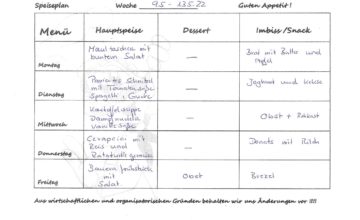 Speiseplan Woche 9.5 - 13.5.22 Guten Appetit!
Menü Hauptspeise Dessert Imbiss / Snack
Montag
Maultaschen mit
buntem Salat
—
Brot mit Butter und
Apfel
Dienstag
Paniertes Schnitzel
mit Tomatensoße
Spagetti + Gurke
—
Joghurt und Kekse
Mittwoch
Kartoffelsuppe
Dampfnudeln
Vanillesoße
—
Obst +
Donnerstag
Cevapcici mit
Reis und
Ratatouillegemüse
—
Donuts mit Milch
Freitag
Bauernfrühstück
mit
Salat
Obst
Brezel
Aus wirtschaftlichen und organisatorischen Gründen behalten wir uns Änderungen vor !!!!